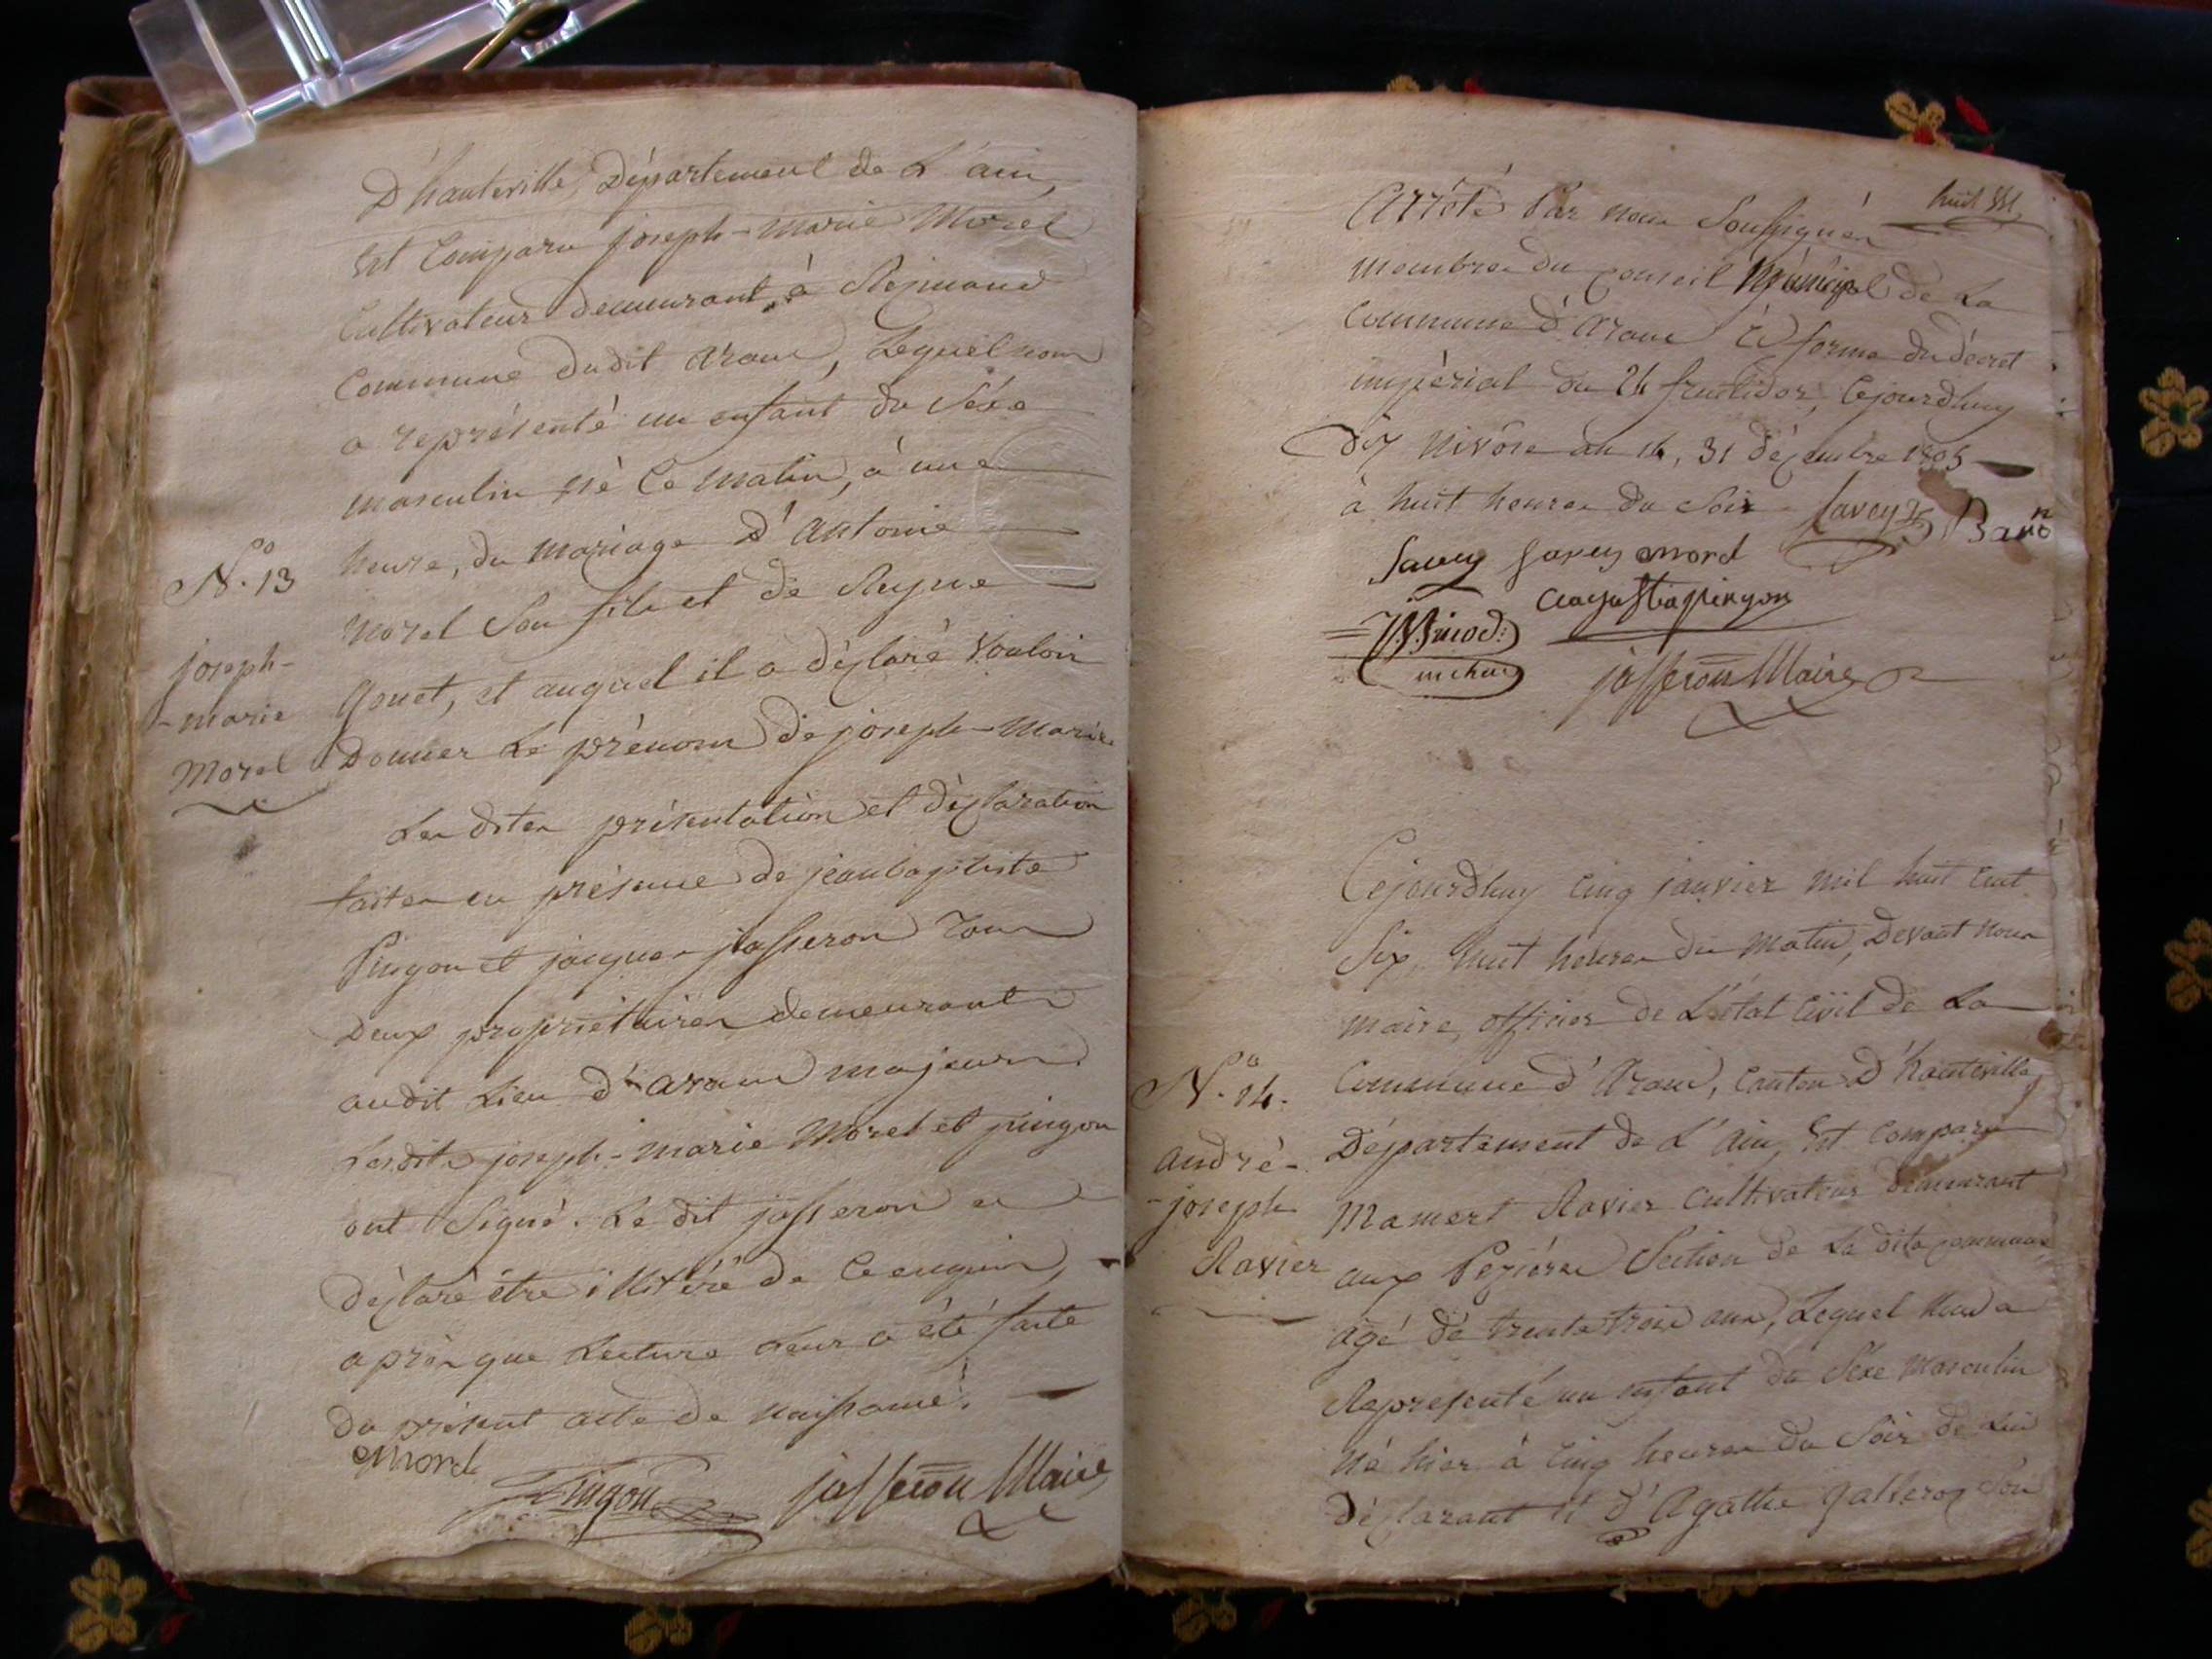 D'hauteville, Département de L'ain,
Est Comparu joseph-marie Morel
Cultivateur demeurant à Résinand
Commune dudit aranc, Lequel nous
a représenté un enfant du Séxe
masculin né Ce matin, à une
N.° 13
heure, du mariage D'antoine
Morel Son fils et de Reyne
joseph-
-marie
Morel
et auquel il a déclaré Vouloir
Donner Le prénom de joseph-Marie.
Les dites présentation et déclaration
faites en présence de jeanbaptiste
Pingon et jacques jasseron Tous
Deux propriétaires demeurants
audit Lieu d'aranc majeurs.
Lesdits joseph-marie Morel et pingon
ont Signé. Le dit jasseron a
déclaré être illitéré de Ce enquis,
après que Lecture Leur a été faite
du présent acte de naissance.
Morel
Pingon
jasseron Maire
huit
Arrêté Par nous Soussignés
membres du Conseil Municipal de La
Commune d'Aranc En forme du décret
impérial du 24 fructidor, Cejourdhuy
dix Nivôse an 14, 31 décembre 1805
à huit heures du Soir
Savey
Savey Savey morel
pingon
jasseron Maire
Cejourdhuy Cinq janvier mil huit Cent
Six, huit heures du matin, Devant nous
maire, officier de L'état Civil de La
N.° 14.
Commune d'Aranc, Canton D'hauteville,
Département de L'Ain, Est Comparu
andré-
-joseph
Ravier
Mamert Ravier Cultivateur demeurant
aux Pézières Section de La dite commune
agé de trente trois ans, Lequel Nous a
Représenté un enfant du Séxe Masculin
Né hier à Cinq heures du Soir de Lui
Déclarant et d'Agathe Jasseron Son